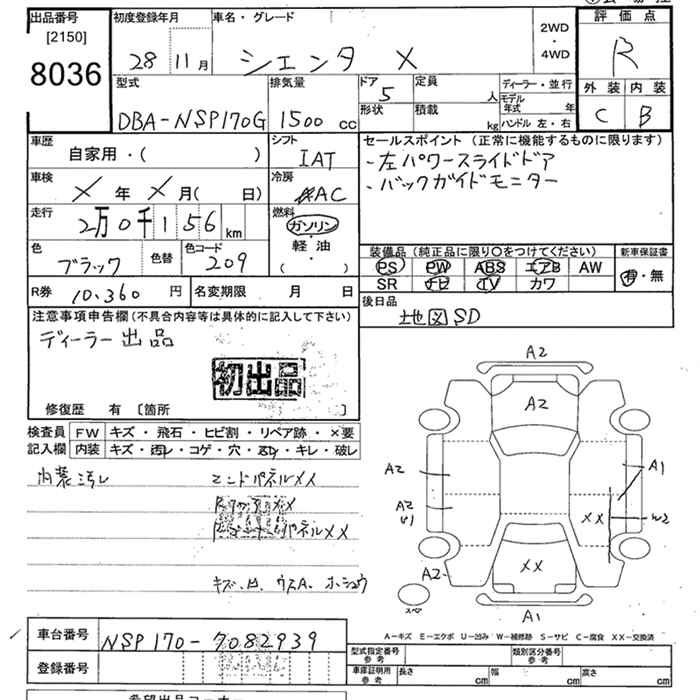 出品番号
[2150]
8036
初度登録年月
28 11月
車名・グレード
シエンタ X
2WD
・
4WD
評価点
R
外装 内装
C B
型式
DBA-NSP170G
排気量
1500 cc
ドア
5
形状
定員
人
積載
kg
ディーラー・並行
モデル
年式 年
ハンドル 左・右
車歴
自家用・( )
シフト
IAT
車検
X 年 X 月( 日)
冷房
AC
走行
2万0千156 km
燃料
ガソリン
・
軽油
・
( )
色
ブラック
色替
色コード
209
R券
10,360 円
名変期限 月 日
セールスポイント(正常に機能するものに限ります)
・左パワースライドドア
・バックガイドモニター
装備品(純正品に限り○をつけてください)
PS PW ABS エアB AW
SR ナビ TV カワ
新車保証書
有・無
後日品
地図 SD
注意事項申告欄(不具合内容等は具体的に記入して下さい)
ディーラー出品
初出品
修復歴 有 [箇所 ]
検査員
記入欄
FW キズ・飛石・ヒビ割・リペア跡・×要
内装 キズ・汚レ・コゲ・穴・スレ・キレ・破レ
内装汚レ
エンドパネルメメ
キズ、凹、ウスA、ホシュウ
A2
A2
A2
A2
U1
A1
XX
W2
XX
A2
スペア
A1
A-キズ E-エクボ U-凹み W-補修跡 S-サビ C-腐食 XX-交換済
車台番号
NSP170-7082939
登録番号
型式指定番号
参考
類別区分番号
参考
車庫証明用
参考
長さ cm
幅 cm
高さ cm
希望出品コーナー